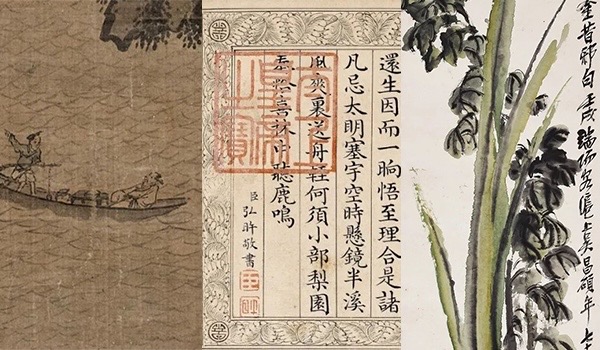 還生因而一晌悟至理合是諸
凡忌太明塞宇空時懸鏡半溪
風爽裏送舟輕何須小部梨園
奏恰喜林中聽鹿鳴
臣弘旿敬書
昌碩年